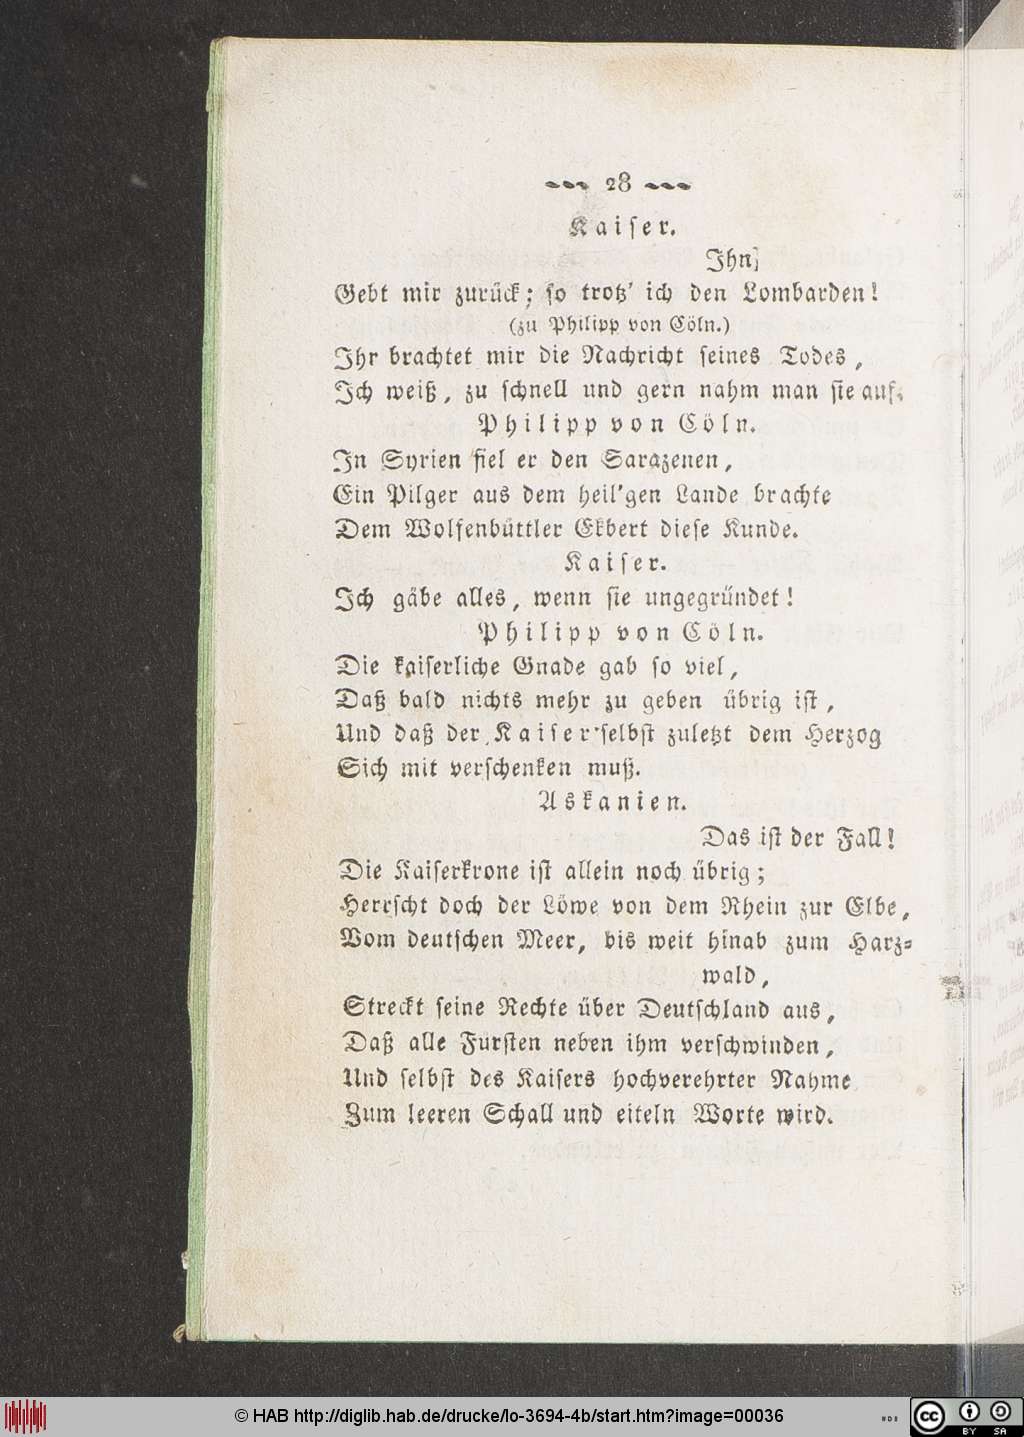 28
Kaiser.
Ihn
Gebt mir zurück; so trotz' ich den Lombarden!
(zu Philipp von Cöln.)
Ihr brachtet mir die Nachricht seines Todes,
Ich weiß, zu schnell und gern nahm man sie auf.
Philipp von Cöln.
In Syrien fiel er den Sarazenen,
Ein Pilger aus dem heil'gen Lande brachte
Dem Wolfenbüttler Ekbert diese Kunde.
Kaiser.
Ich gäbe alles, wenn sie ungegründet!
Philipp von Cöln.
Die kaiserliche Gnade gab so viel,
Daß bald nichts mehr zu geben übrig ist,
Und daß der Kaiser selbst zuletzt dem Herzog
Sich mit verschenken muß.
Askanien.
Das ist der Fall!
Die Kaiserkrone ist allein noch übrig;
Herrscht doch der Löwe von dem Rhein zur Elbe,
Vom deutschen Meer, bis weit hinab zum Harz-
wald,
Streckt seine Rechte über Deutschland aus,
Daß alle Fürsten neben ihm verschwinden,
Und selbst des Kaisers hochverehrter Nahme
Zum leeren Schall und eiteln Worte wird.
© HAB http://diglib.hab.de/drucke/lo-3694-4b/start.htm?image=00036
cc BY SA